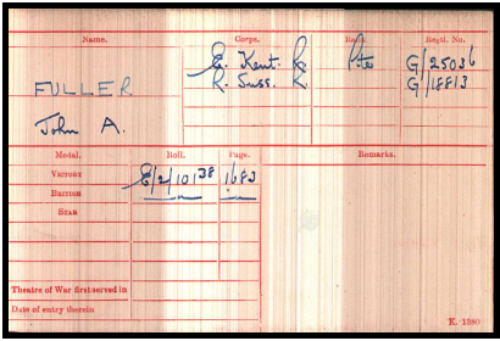 Name. Corps. Rank. Regtl. No.
E. Kent. R. Pte G/25036
R. Suss. R. G/18813
FULLER
John A.
Medal. Roll. Page. Remarks.
Victory E/2/101B8 1683
British
Star
Theatre of War first served in
Date of entry therein
K. 1380